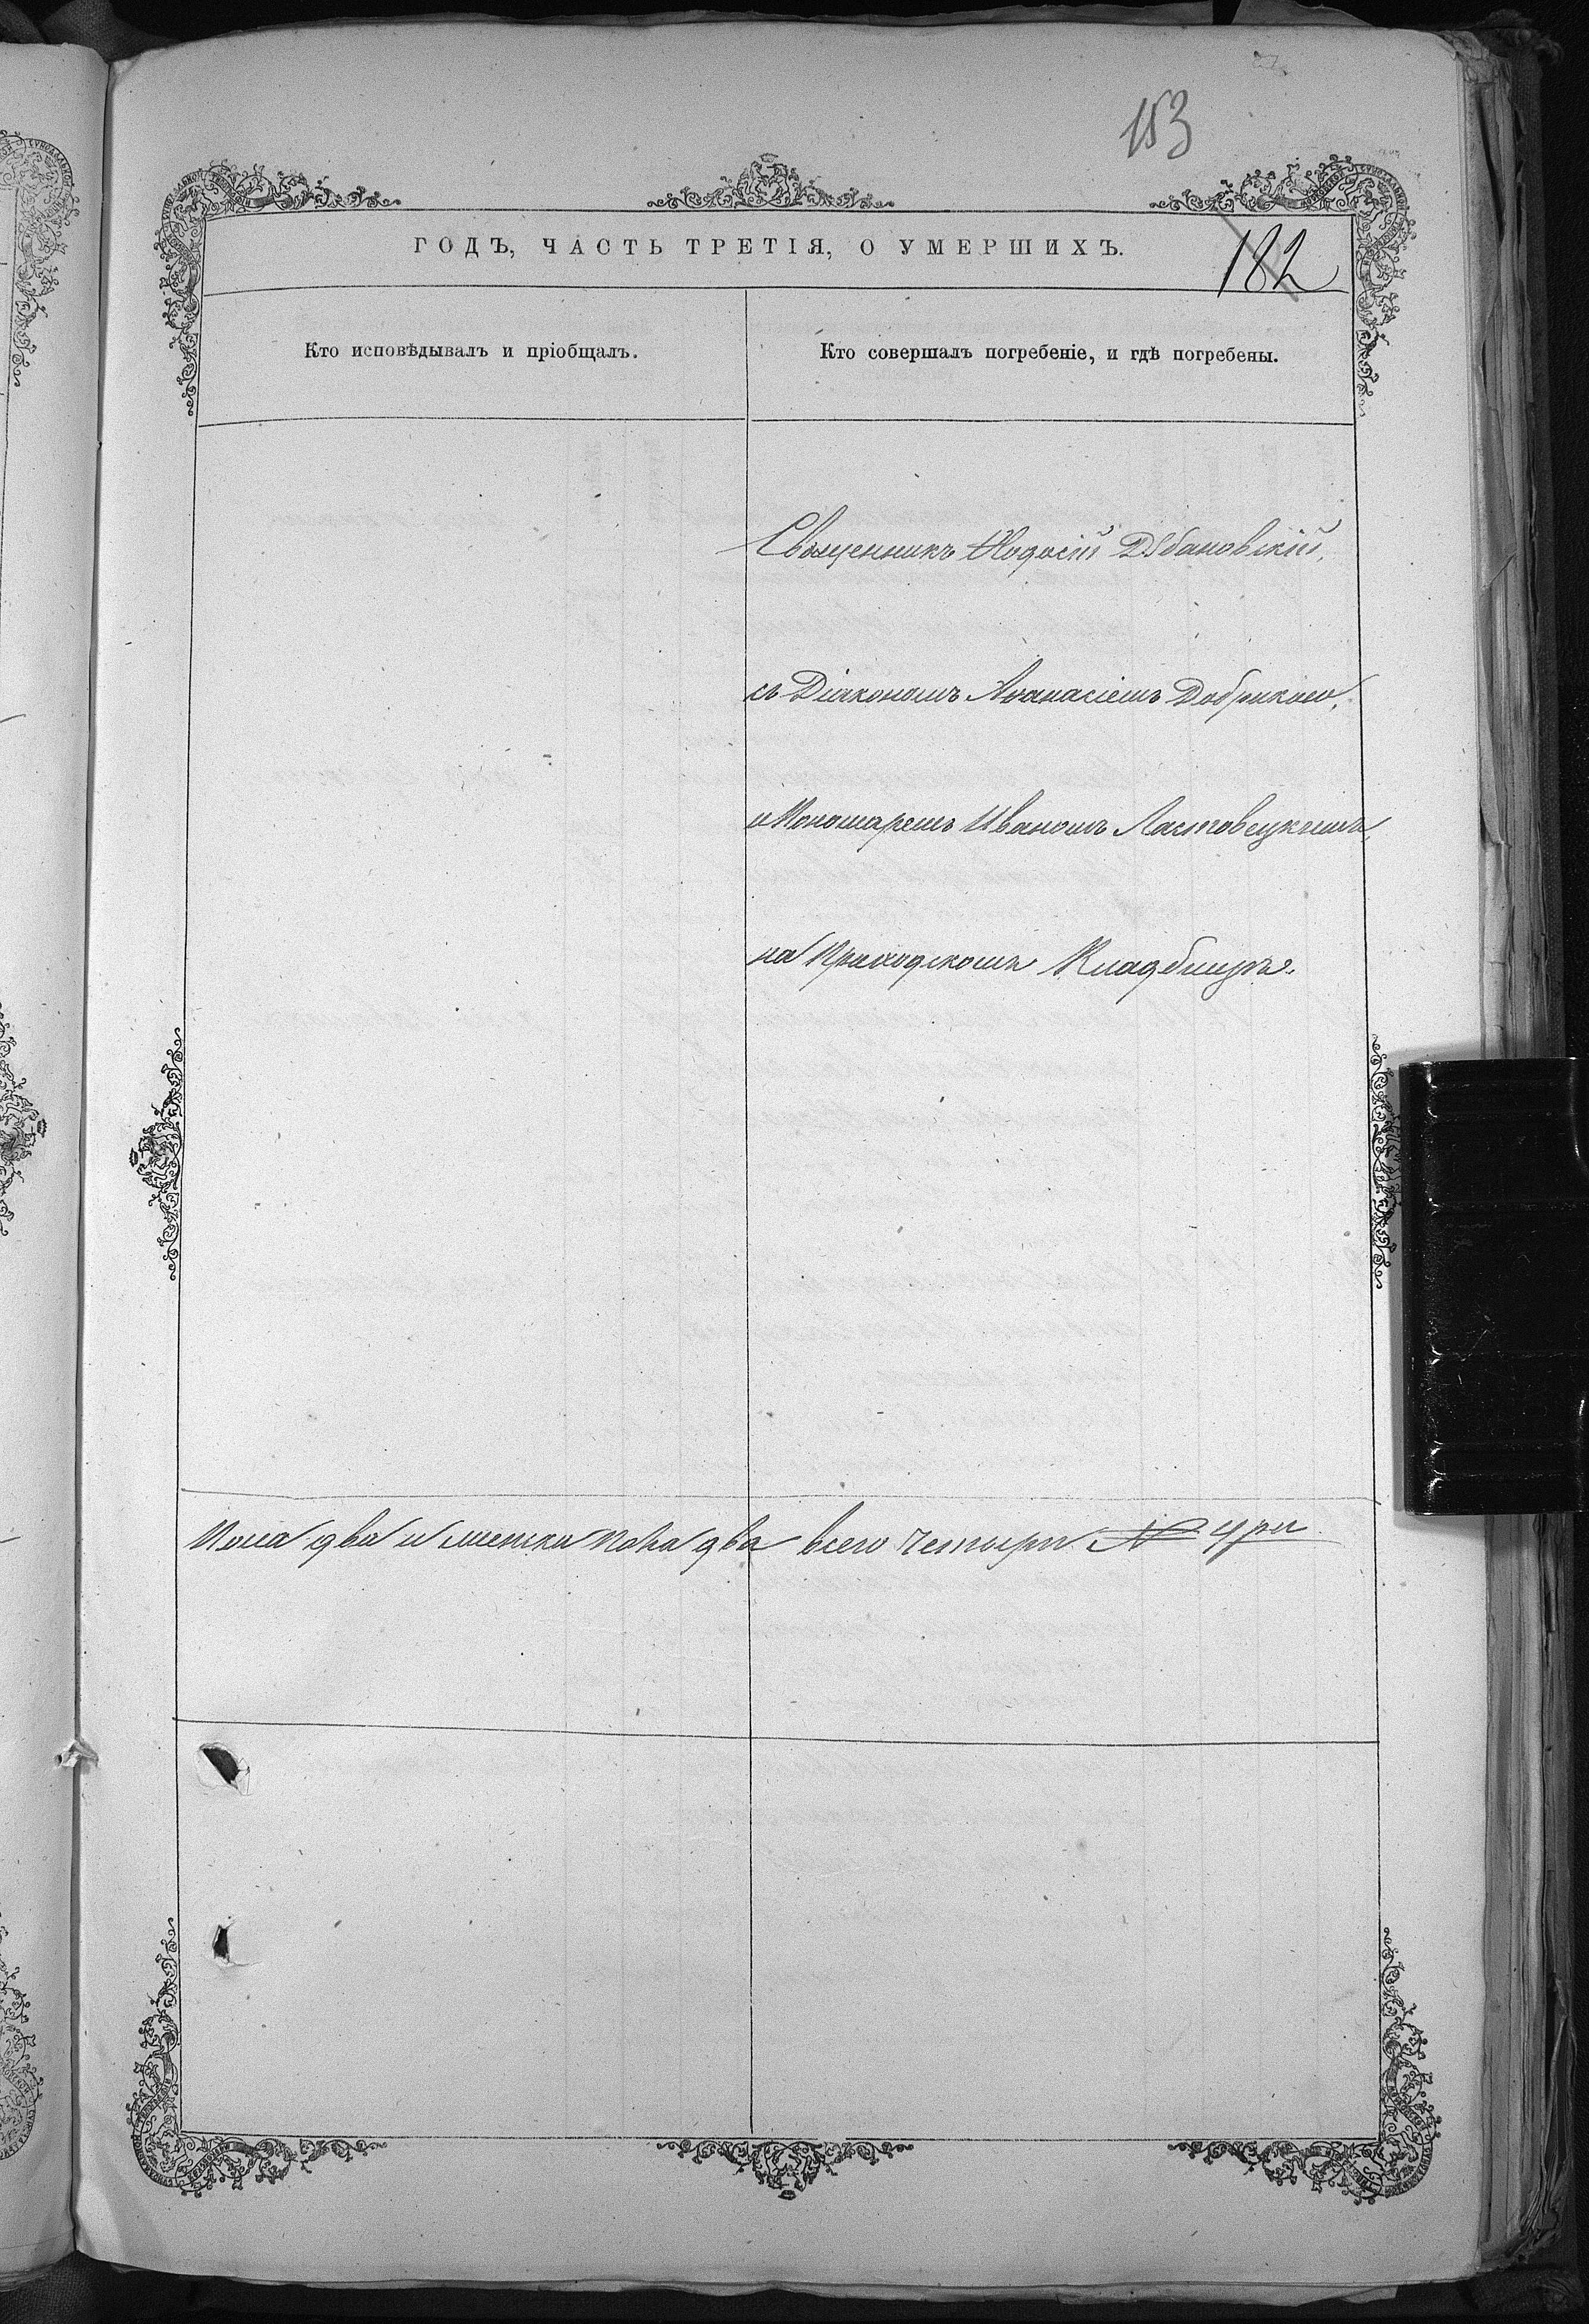 153
ГОДЪ, ЧАСТЬ ТРЕТІЯ, О УМЕРШИХЪ.
182
Кто исповѣдывалъ и пріобщалъ.
Кто совершалъ погребеніе, и гдѣ погребены.
Священникъ Ѳеодосій
съ Діакономъ Аѳанасіемъ
и Пономаремъ Иваномъ Ластовецкимъ,
на Приходскомъ Кладбищѣ.
пола два и женска пола два всего четыре